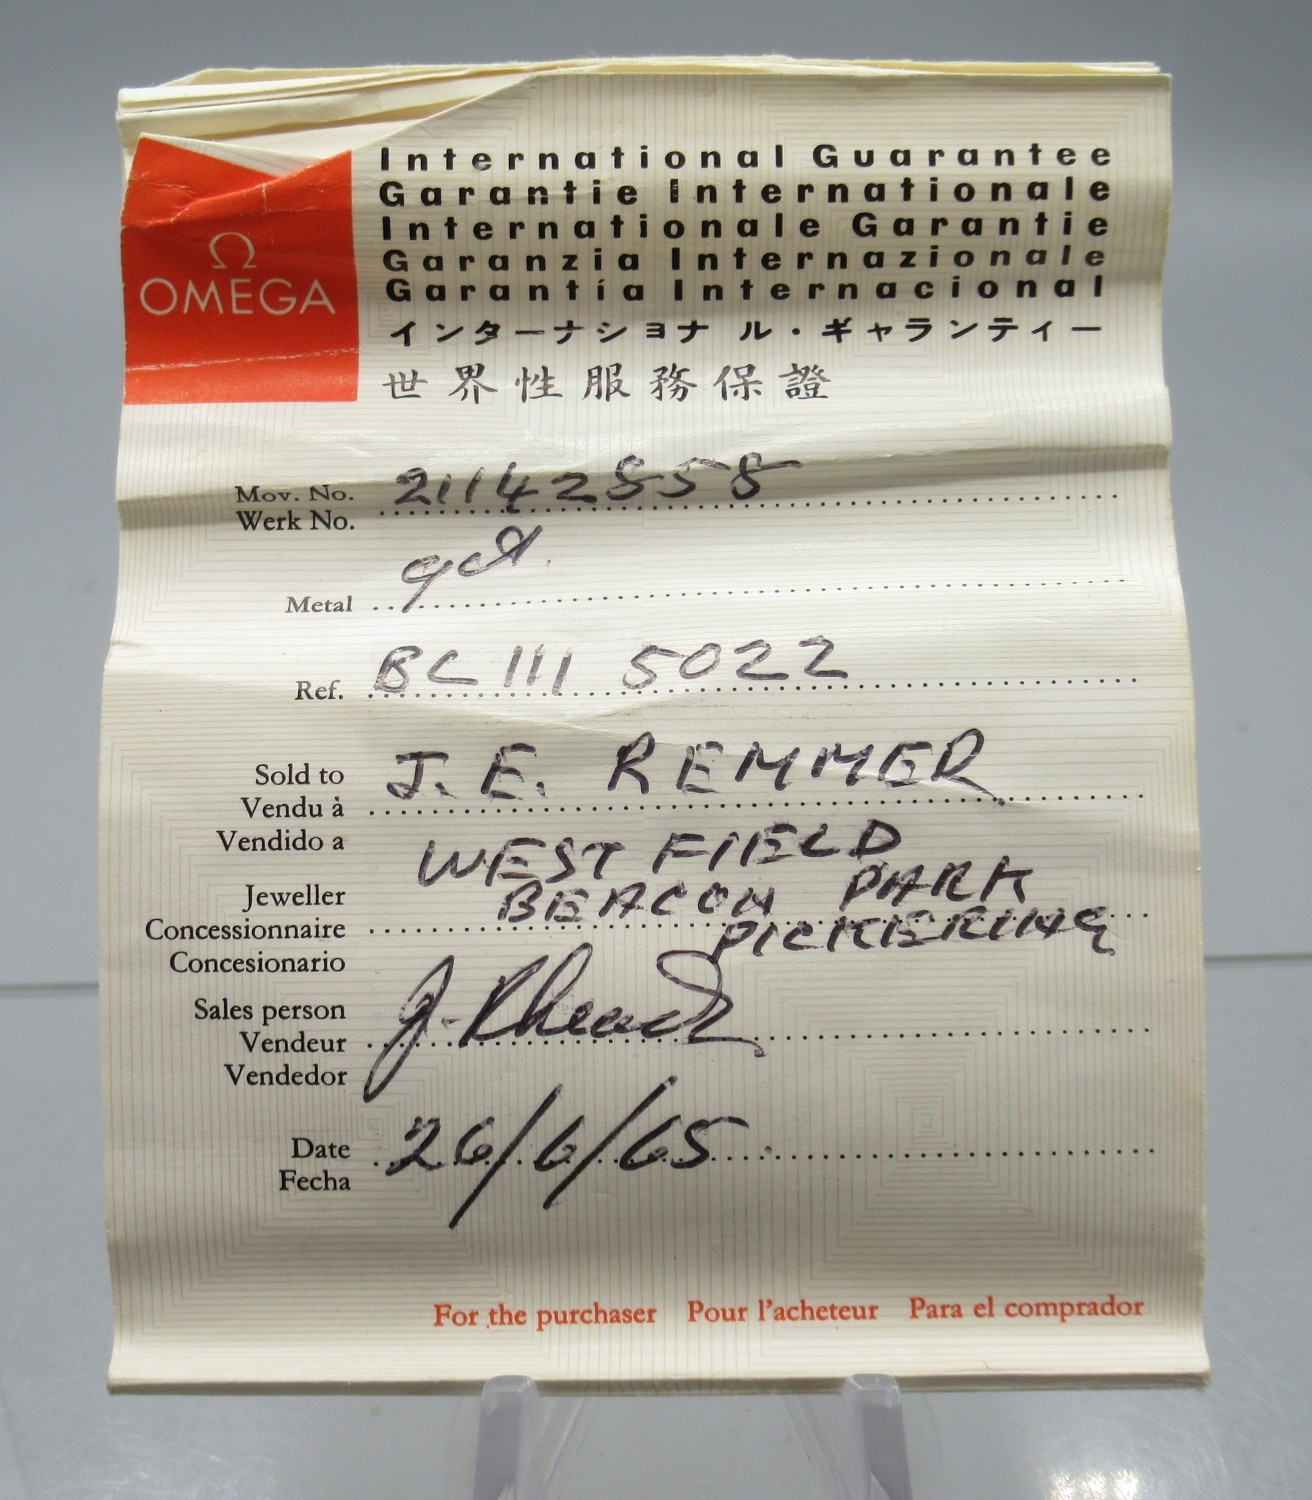 Ω
OMEGA
International Guarantee
Garantie Internationale
Internationale Garantie
Garanzia Internazionale
Garantía Internacional
インターナショナル・ギャランティー
世界性服務保證
Mov. No. 21142858
Werk No.
Metal
Ref. BC III 5022
Sold to J. E. REMMER
Vendu à
Vendido a
WESTFIELD
Jeweller BEACON PARK
Concessionnaire PICKERING
Concesionario
Sales person
Vendeur
Vendedor
Date 26/6/65
Fecha
For the purchaser Pour l'acheteur Para el comprador